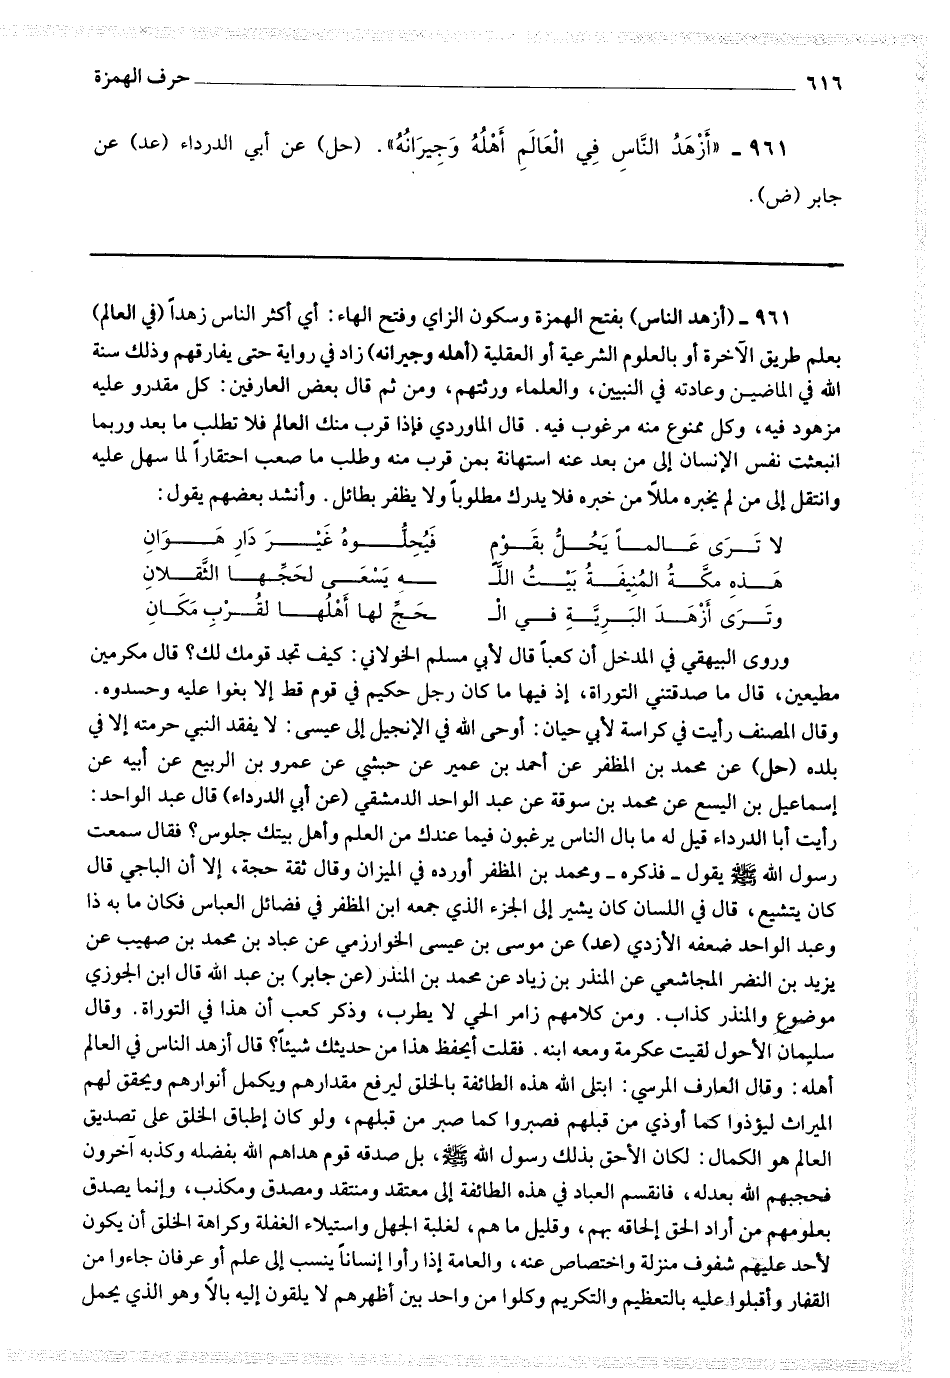 ٦١٦ حرف الهمزة
٩٦١ ـ «أَزْهَدُ النَّاسِ فِي الْعَالَمِ أَهْلُهُ وَجِيرَانُهُ». (حل) عن أبي الدرداء (عد) عن
جابر (ض).
٩٦١ ـ (أزهد الناس) بفتح الهمزة وسكون الزاي وفتح الهاء: أي أكثر الناس زهداً (في العالم)
بعلم طريق الآخرة أو بالعلوم الشرعية أو العقلية (أهله وجيرانه) زاد في رواية حتى يفارقهم وذلك سنة
الله في الماضين وعادته في النبيين، والعلماء ورثتهم، ومن ثم قال بعض العارفين: كل مقدرو عليه
مزهود فيه، وكل ممنوع منه مرغوب فيه. قال الماوردي فإذا قرب منك العالم فلا تطلب ما بعد وربما
انبعثت نفس الإنسان إلى من بعد عنه استهانة بمن قرب منه وطلب ما صعب احتقاراً لما سهل عليه
وانتقل إلى من لم يخبره مللاً من خبره فلا يدرك مطلوباً ولا يظفر بطائل. وأنشد بعضهم يقول:
لا تَرَى عَالماً يَحُلُّ بقَوْمٍ فَيُحِلُّوهُ غَيْرَ دَارِ هَوَانِ
هَذهِ مكَّةُ المُنِيفَةُ بَيْتُ اللَّـ ـهِ يَسْعَى لحَجِّها الثَّقَلانِ
وتَرَى أزْهَدَ البَرِيَّةِ في الْـ ـحَجِّ لها أهْلُها لقُرْبِ مَكَانِ
وروى البيهقي في المدخل أن كعباً قال لأبي مسلم الخولاني: كيف تجد قومك لك؟ قال مكرمين
مطيعين، قال ما صدقتني التوراة، إذ فيها ما كان رجل حكيم في قوم قط إلا بغوا عليه وحسدوه.
وقال المصنف رأيت في كراسة لأبي حيان: أوحى الله في الإنجيل إلى عيسى: لا يفقد النبي حرمته إلا في
بلده (حل) عن محمد بن المظفر عن أحمد بن عمير عن حبشي عن عمرو بن الربيع عن أبيه عن
إسماعيل بن اليسع عن محمد بن سوقة عن عبد الواحد الدمشقي (عن أبي الدرداء) قال عبد الواحد:
رأيت أبا الدرداء قيل له ما بال الناس يرغبون فيما عندك من العلم وأهل بيتك جلوس؟ فقال سمعت
رسول الله ﷺ يقول ـ فذكره ـ ومحمد بن المظفر أورده في الميزان وقال ثقة حجة، إلا أن الباجي قال
كان يتشيع، قال في اللسان كان يشير إلى الجزء الذي جمعه ابن المظفر في فضائل العباس فكان ما به ذا
وعبد الواحد ضعفه الأزدي (عد) عن موسى بن عيسى الخوارزمي عن عباد بن محمد بن صهيب عن
يزيد بن النضر المجاشعي عن المنذر بن زياد عن محمد بن المنذر (عن جابر) بن عبد الله قال ابن الجوزي
موضوع والمنذر كذاب. ومن كلامهم زامر الحي لا يطرب، وذكر كعب أن هذا في التوراة. وقال
سليمان الأحول لقيت عكرمة ومعه ابنه. فقلت أيحفظ هذا من حديثك شيئاً؟ قال أزهد الناس في العالم
أهله: وقال العارف المرسي: ابتلى الله هذه الطائفة بالخلق ليرفع مقدارهم ويكمل أنوارهم ويحقق لهم
الميراث ليؤذوا كما أوذي من قبلهم فصبروا كما صبر من قبلهم، ولو كان إطباق الخلق على تصديق
العالم هو الكمال: لكان الأحق بذلك رسول الله ﷺ، بل صدقه قوم هداهم الله بفضله وكذبه آخرون
فحجبهم الله بعدله، فانقسم العباد في هذه الطائفة إلى معتقد ومنتقد ومصدق ومكذب، وإنما يصدق
بعلومهم من أراد الحق إلحاقه بهم، وقليل ما هم، لغلبة الجهل واستيلاء الغفلة وكراهة الخلق أن يكون
لأحد عليهم شفوف منزلة واختصاص عنه، والعامة إذا رأوا إنساناً ينسب إلى علم أو عرفان جاءوا من
القفار وأقبلوا عليه بالتعظيم والتكريم وكلوا من واحد بين أظهرهم لا يلقون إليه بالاً وهو الذي يحمل